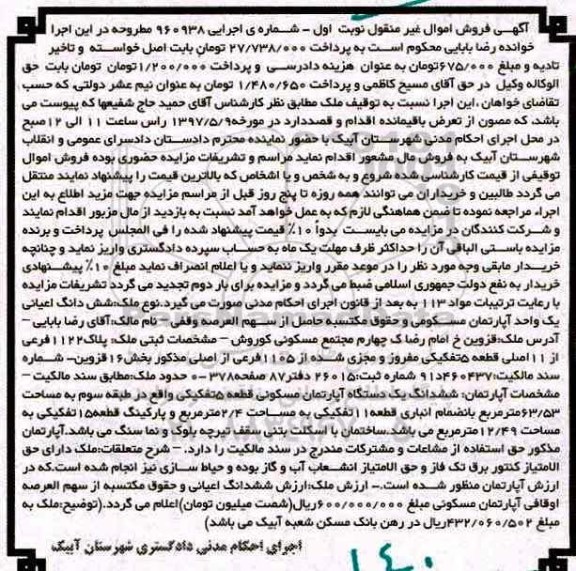 آگهـی فروش اموال غیر منقول نوبت اول - شماره ی اجرایی ۹۶۰۹۳۸ مطروحه در این اجرا
خوانده رضا بابایی محکوم است به پرداخت ۲۷/۷۳۸/۰۰۰ تومان بابت اصل خواسته و تاخیر
تادیه و مبلغ ۶۷۵/۰۰۰تومان به عنوان هزینه دادرسی و پرداخت ۱/۲۰۰/۰۰۰تومان تومان بابت حق
الوکاله وکیل در حق آقای مسیح کاظمی و پرداخت ۱/۴۸۰/۶۵۰ تومان به عنوان نیم عشر دولتی، که حسب
تقاضای خواهان ،این اجرا نسبت به توقیف ملک مطابق نظر کارشناس آقای حمید حاج شفیعها که پیوست می
باشد، که مصون از تعرض باقیمانده اقدام و قصددارد در مورخه۱۳۹۷/۵/۹ راس ساعت ۱۱ الی ۱۲صبح
در محل اجرای احکام مدنی شهرستان آبیک با حضور نماینده محترم دادستان دادسرای عمومی و انقلاب
شهرستان آبیک به فروش مال مشعور اقدام نماید مراسم و تشریفات مزایده حضوری بوده فروش اموال
توقیفی از قیمت کارشناسی شده شروع و به شخص و یا اشخاص که بالاترین قیمت را پیشنهاد نمایند منتقل
می گردد طالبین و خریداران می توانند همه روزه تا پنج روز قبل از مراسم مزایده جهت مزید اطلاع به این
اجراء مراجعه نموده تا ضمن هماهنگی لازم که به عمل خواهد آمد نسبت به بازدید از مال مزبور اقدام نمایند
و شرکت کنندگان در مزایده می بایست بدواً ۱۰٪ قیمت پیشنهاد شده را فی المجلس پرداخت و برنده
مزایده باستی الباقی آن را حداکثر ظرف مهلت یک ماه به حساب سپرده دادگستری واریز نماید و چنانچه
خریدار مابقی وجه مورد نظر را در موعد مقرر واریز ننماید و یا اعلام انصراف نماید مبلغ ۱۰٪ پیشنهادی
خریدار به نفع دولت جمهوری اسلامی ضبط می گردد و مزایده برای بار دوم تجدید می گردد تشریفات مزایده
با رعایت ترتیبات مواد ۱۱۳ به بعد از قانون اجرای احکام مدنی صورت می گیرد.نوع ملک:شش دانگ اعیانی
یک واحد آپارتمان مسکونی و حقوق مکتسبه حاصل از سهم العرصه وقفی - نام مالک:آقای رضا بابایی-
آدرس ملک:قزوین خ امام رضا ک چهارم مجتمع مسکونی کوروش - مشخصات ثبتی ملک: پلاک۱۱۲۲فرعی
از ۱۱اصلی قطعه ۵تفکیکی مفروز و مجزی شده از ۱۱۰۵فرعی از اصلی مذکور بخش۱۶قزوین- شماره
سند مالکیت:۴۶۰۴۳۷د۹۱ شماره ثبت:۲۶۰۱۵ دفتر۸۷ صفحه۳۷۸ -۰ حدود ملک:مطابق سند مالکیت-
مشخصات آپارتمان: ششدانگ یک دستگاه آپارتمان مسکونی قطعه ۵تفکیکی واقع در طبقه سوم به مساحت
۶۳/۵۳مترمربع بانضمام انباری قطعه۱۱تفکیکی به مساحت ۲/۴مترمربع و پارکینگ قطعه۱۵تفکیکی به
مساحت ۱۲/۴۹مترمربع می باشد.ساختمان با اسکلت بتنی سقف تیرچه بلوک و نما سنگ می باشد.آپارتمان
مذکور حق استفاده از مشاعات و مشترکات مندرج در سند مالکیت را دارد. - شرح متعلقات:ملک دارای حق
الامتیاز کنتور برق تک فاز و حق الامتیاز انشعاب آب و گاز بوده و حیاط سازی نیز انجام شده است.که در
ارزش آپارتمان منظور شده است.- ارزش ملک:ارزش ششدانگ اعیانی و حقوق مکتسبه از سهم العرصه
اوقافی آپارتمان مسکونی مبلغ ۶۰۰/۰۰۰/۰۰۰ریال(شصت میلیون تومان)اعلام می گردد.(توضیح:ملک به
مبلغ ۴۳۲/۰۶۰/۵۰۲ریال در رهن بانک مسکن شعبه آبیک می باشد)
اجرای احکام مدنی دادگستری شهرستان آبیک
۱۴۰